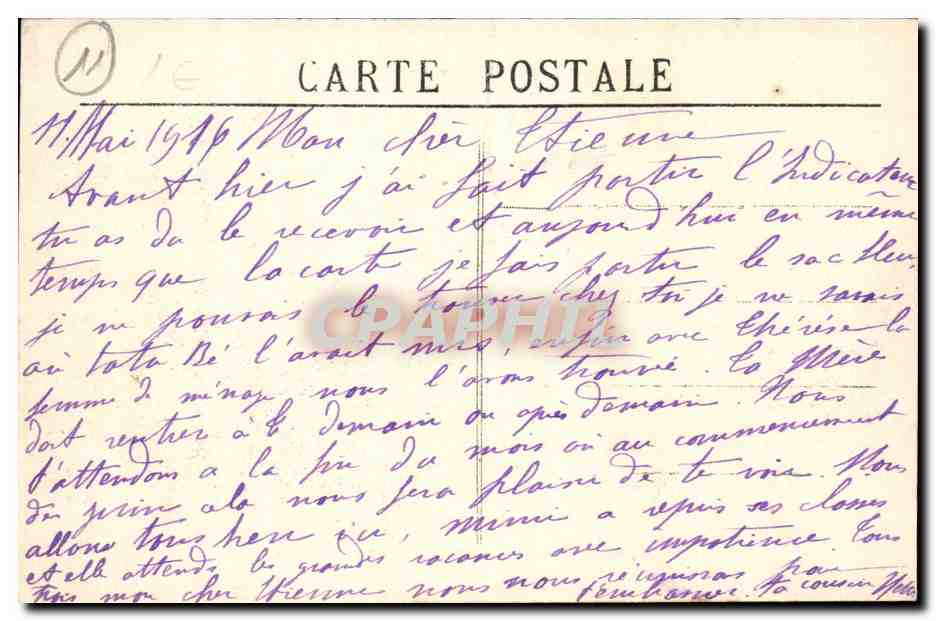 11
CARTE POSTALE
11 Mai 1916 Mon cher Etienne
Avant hier j'ai fait partir l'Indicateur
tu as du le recevoir et aujourd'hui en même
temps que la carte je fais partir le sac bleu,
je ne pouvais le trouver chez toi je ne savais
où tata Bé l'avait mis, enfin avec Thérèse la
femme de ménage nous l'avons trouvé. Ta Mère
doit rentrer à demain ou après demain. Nous
t'attendons a la fin du mois ou au commencement
de juin cela nous fera plaisir de te voir. Nous
allons tous bien ici, Mimi a repris ses classes
et elle attends les grandes vacances avec impatience. Tous
trois mon cher Etienne nous nous réunissons pour
t'embrasser. Ta cousine
CPAPHIL